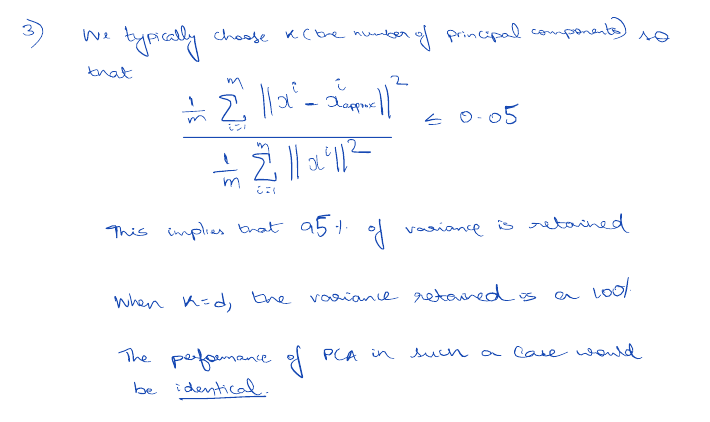 3) We typically choose K (the number of principal components) so
that
1/m Σ_{i=1}^{m} ||x^i - x^i_approx||^2 / 1/m Σ_{i=1}^{m} ||x^i||^2 ≤ 0.05
This implies that 95% of variance is retained
When K=d, the variance retained is a 100%
The performance of PCA in such a case would
be identical.